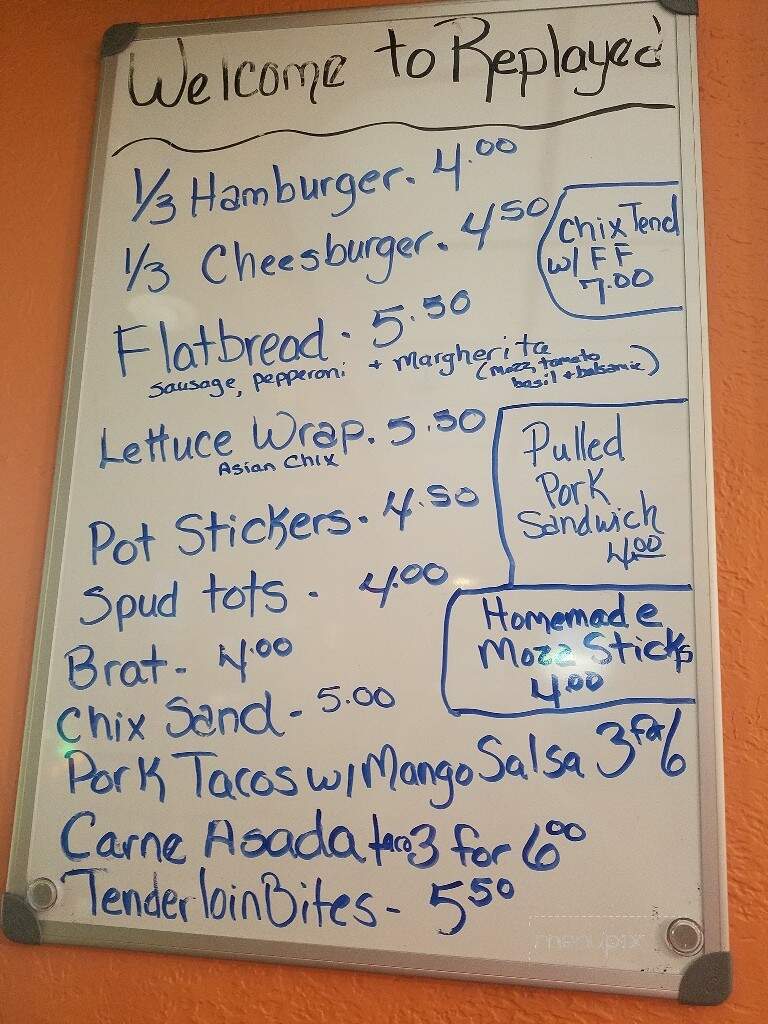 Welcome to Replayed
1/3 Hamburger. 4.00
1/3 Cheesburger. 4.50
Chix Tend
w/ FF
7.00
Flatbread - 5.50
sausage, pepperoni + margherita
(mozz, tomato
basil + balsamic)
Lettuce Wrap. 5.50
Asian Chix
Pulled
Pork
Sandwich
4.00
Pot Stickers. 4.50
Spud tots - 4.00
Homemade
Mozz Sticks
4.00
Brat - 4.00
Chix Sand - 5.00
Pork Tacos w/ Mango Salsa 3 for 6
Carne Asada taco 3 for 6.00
Tenderloin Bites - 5.50
menupix